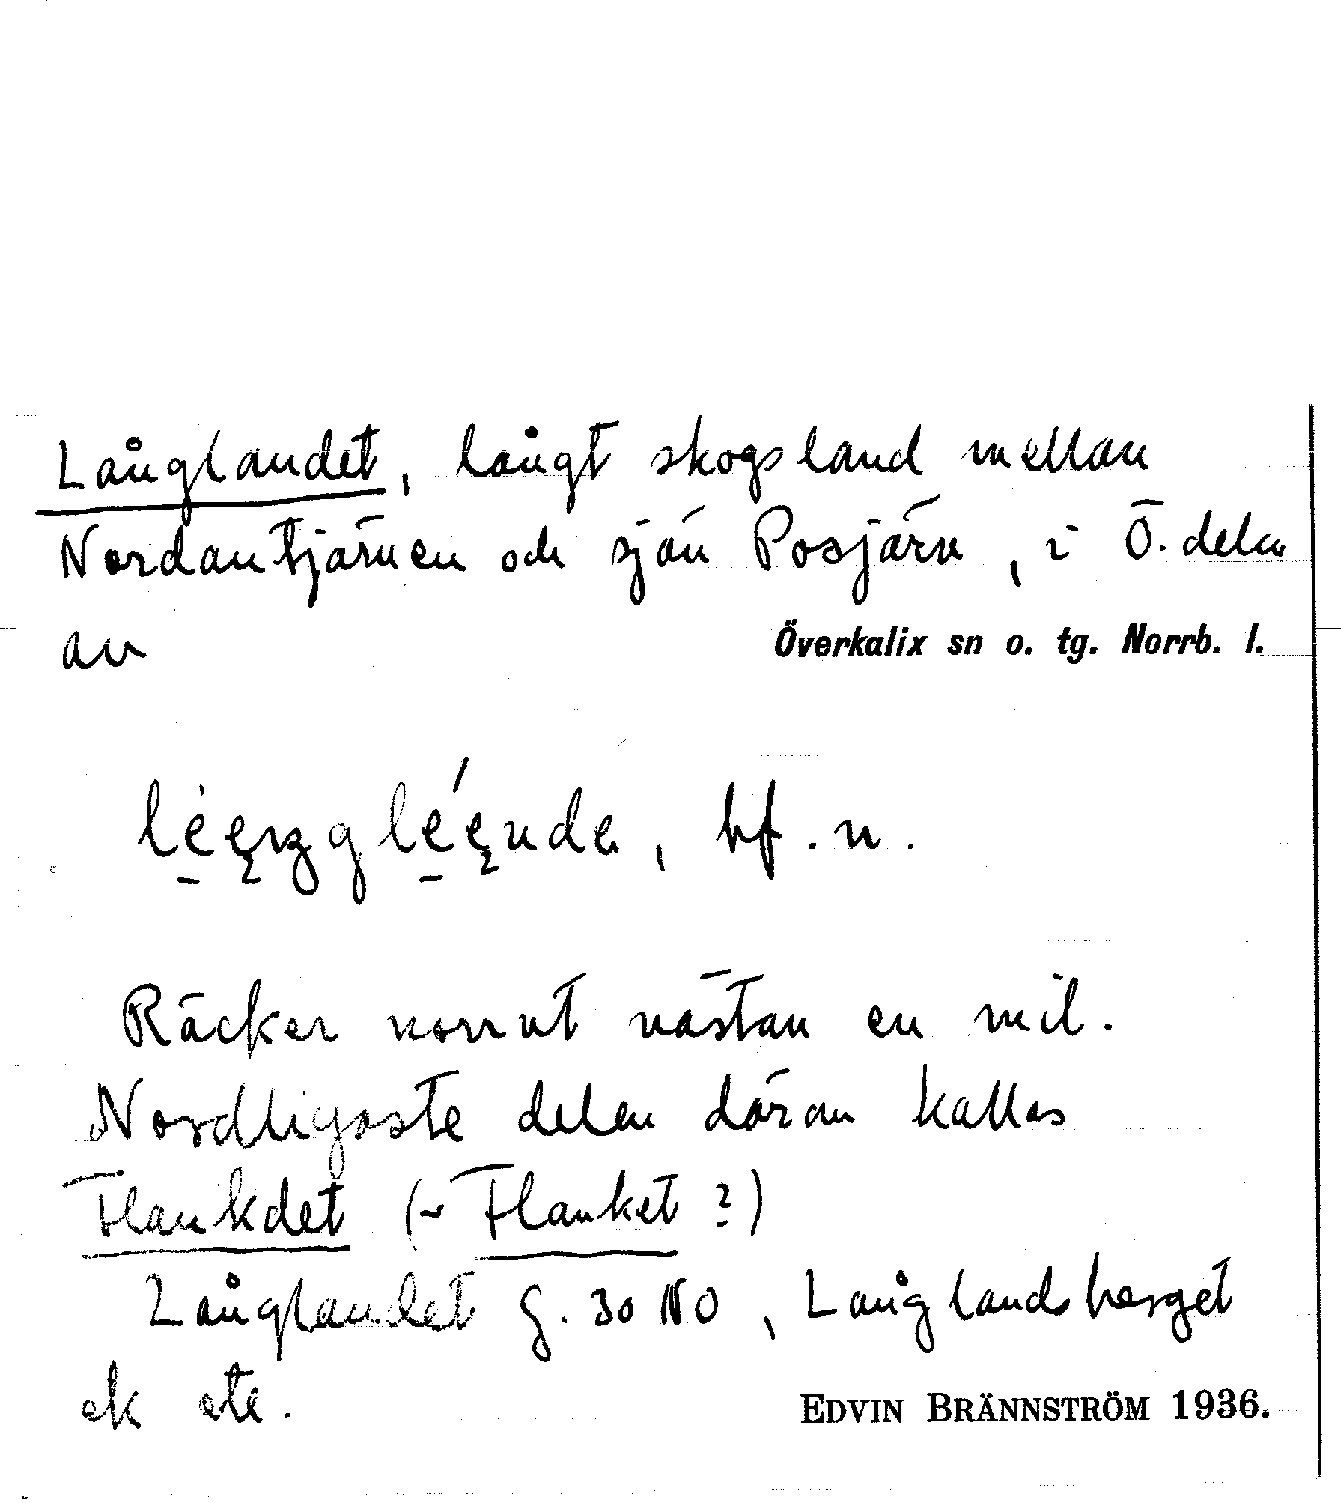 Långlandet, långt skogsland mellan
Nordantjärnen och sjön Posjärv, i Ö. delen
av Överkalix sn o. tg. Norrb. l.
bf. n.
Räcker norrut nästan en mil.
Nordligaste delen däran kallas
Flankdet (~ Flanket ?)
Långlandet G. 30 NO, Långlandsberget
ek etc.
EDVIN BRÄNNSTRÖM 1936.